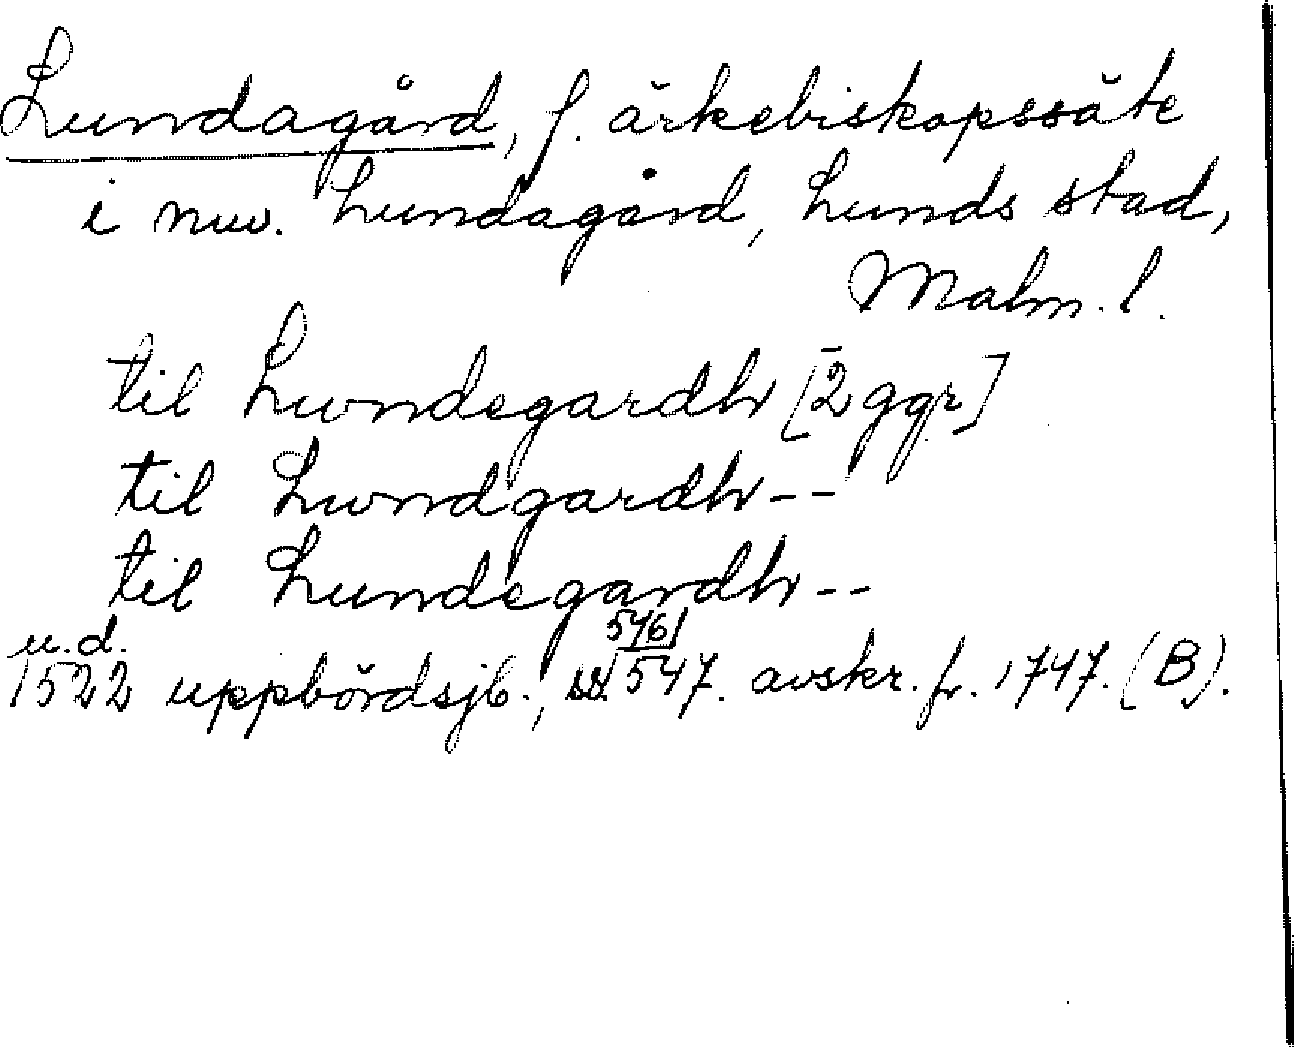 Lundagård, f. ärkebiskopssäte
i nuv. Lundagård, Lunds stad,
Malm. l.
til Lwndegardh [2 ggr]
til Lwndgardh--
til Lundegardh--
u.d. 546/
1522 uppbördsjb., 547. avskr. fr. 1747. (B).